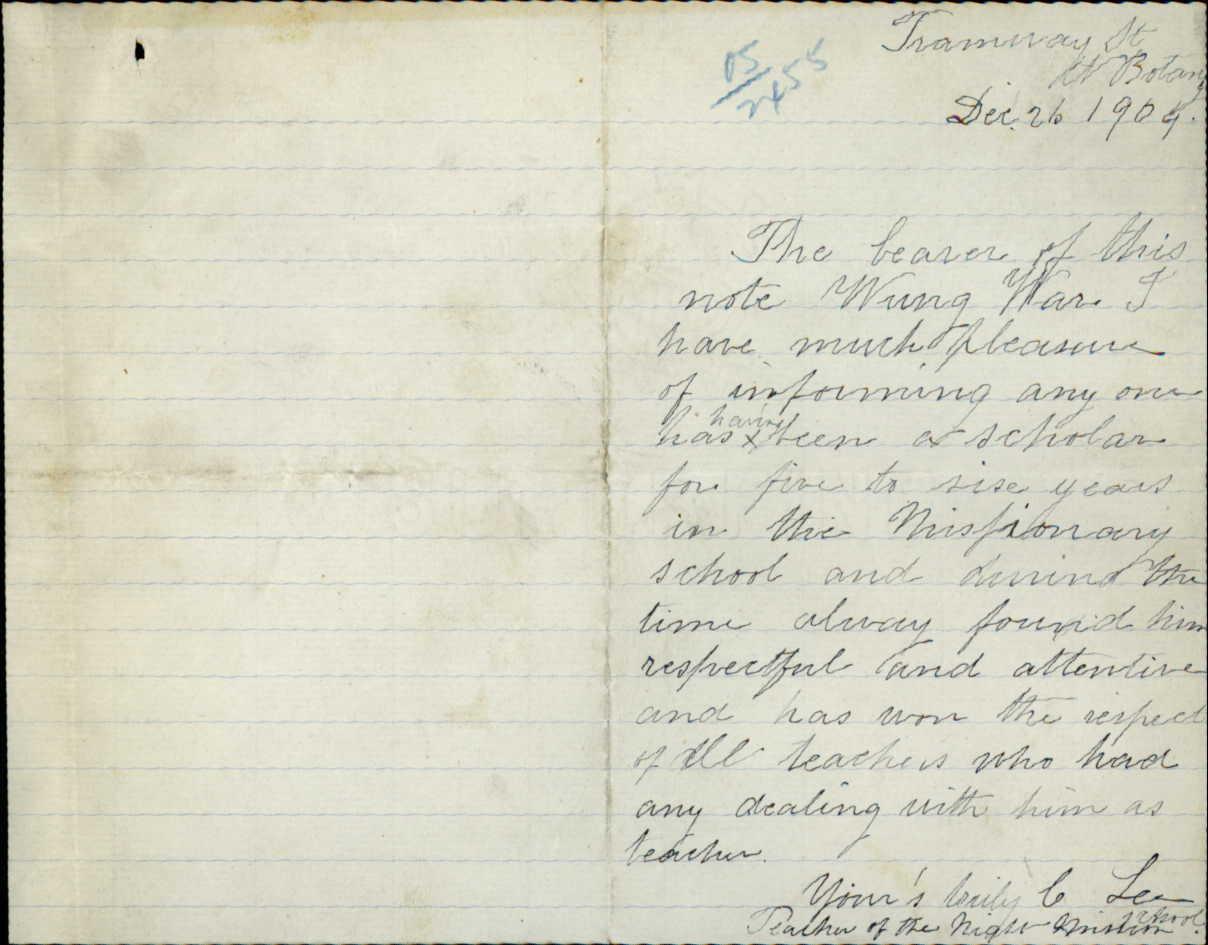 05
2455
Tramway St
Nt Botany
Dec. 26 1904.
The bearer of this
note Wung War I
have much pleasure
of informing any one
has having been a scholar
for five to sise years
in the Missionary
school and during the
time alway found him
respectful and attentive
and has won the respect
of all teachers who had
any dealing with him as
teacher.
Your's truly C Lee
Teacher of the Night Mission School.